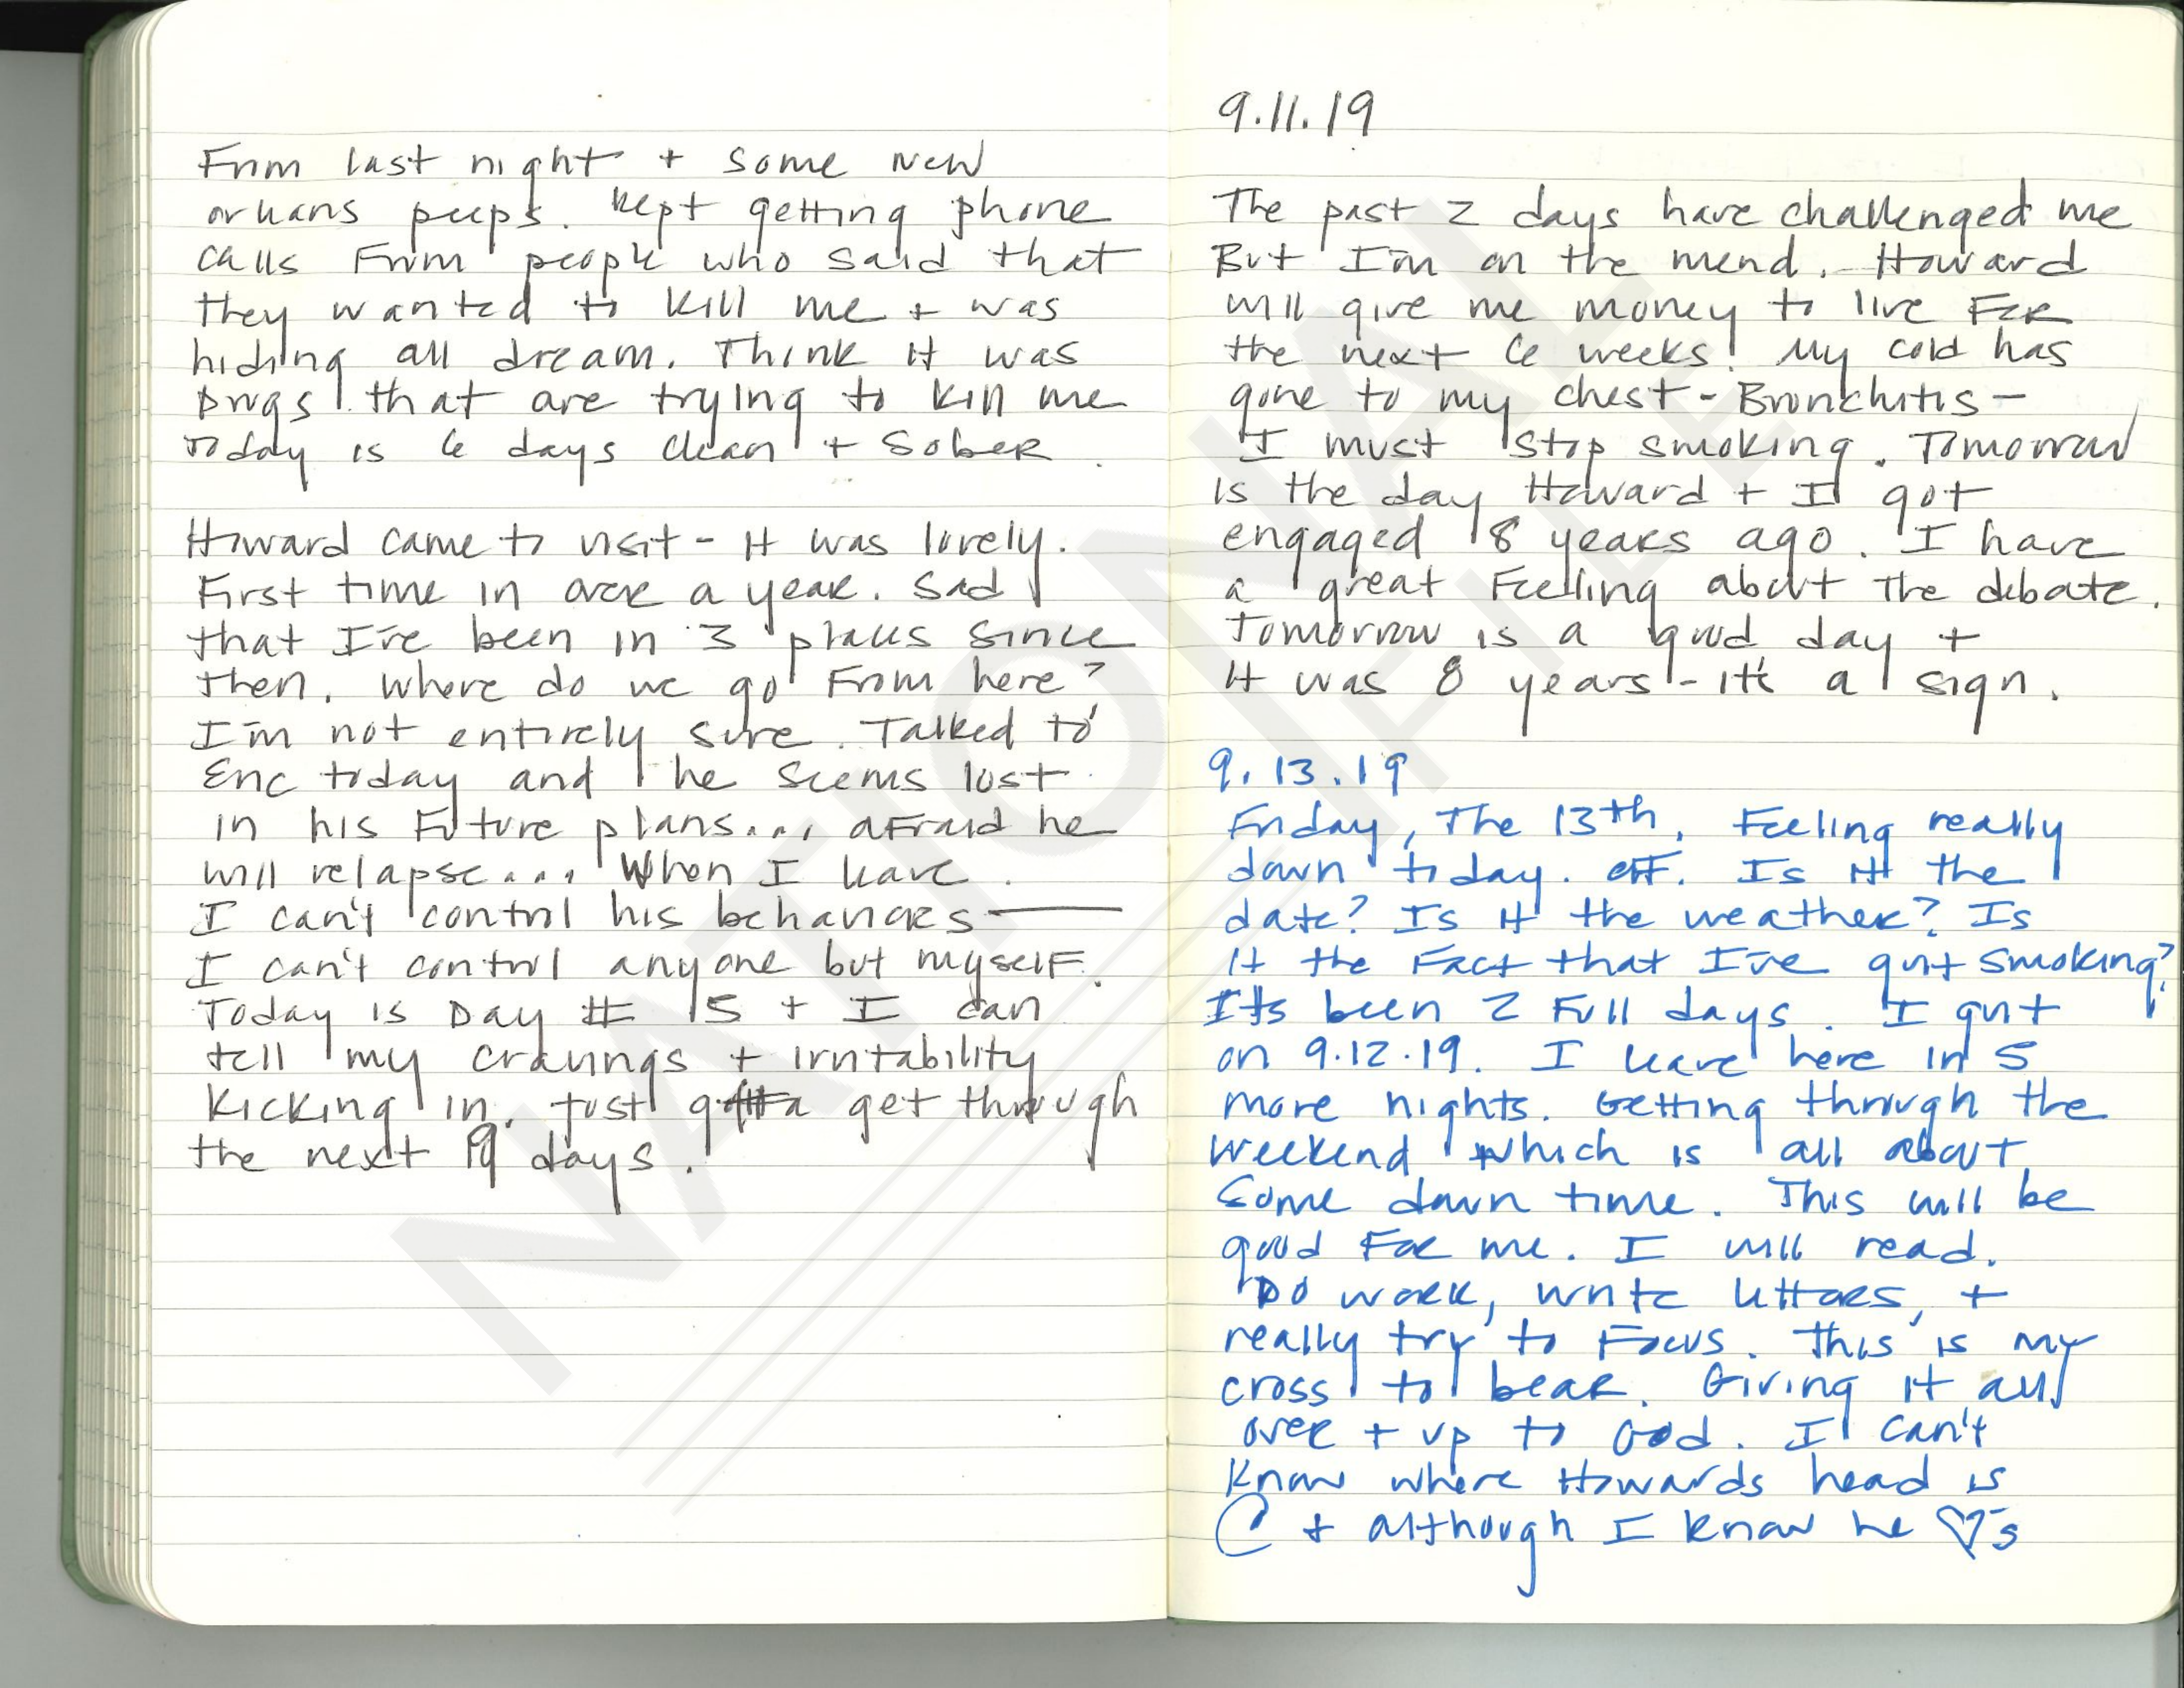 From last night + some new
orleans peeps. Kept getting phone
calls from people who said that
they wanted to kill me + was
hiding all dream. Think it was
Drugs that are trying to kill me
Today is 6 days clean + sober.
Howard came to visit - it was lovely.
First time in over a year. Sad
that I've been in 3 places since
then. Where do we go from here?
I'm not entirely sure. Talked to
Eric today and he seems lost
in his future plans... afraid he
will relapse... When I leave.
I can't control his behaviors —
I can't control anyone but myself.
Today is Day # 15 + I can
tell my cravings + irritability
kicking in. Just gotta get through
the next 19 days.
9.11.19
The past 2 days have challenged me
But I'm on the mend. Howard
will give me money to live for
the next 6 weeks! My cold has
gone to my chest - Bronchitis -
I must stop smoking. Tomorrow
is the day Howard + I got
engaged 8 years ago. I have
a great feeling about the debate.
Tomorrow is a good day +
it was 8 years - it's a sign.
9.13.19
Friday, the 13th. Feeling really
down today. off. Is it the
date? Is it the weather? Is
it the fact that I've quit smoking?
It's been 2 full days. I quit
on 9.12.19. I leave here in 5
more nights. Getting through the
weekend which is all about
some down time. This will be
good for me. I will read.
Do work, write letters, +
really try to focus. This is my
cross to bear. Giving it all
over + up to God. I can't
know where Howards head is
+ although I know he ♡'s
NATIONAL
FILE